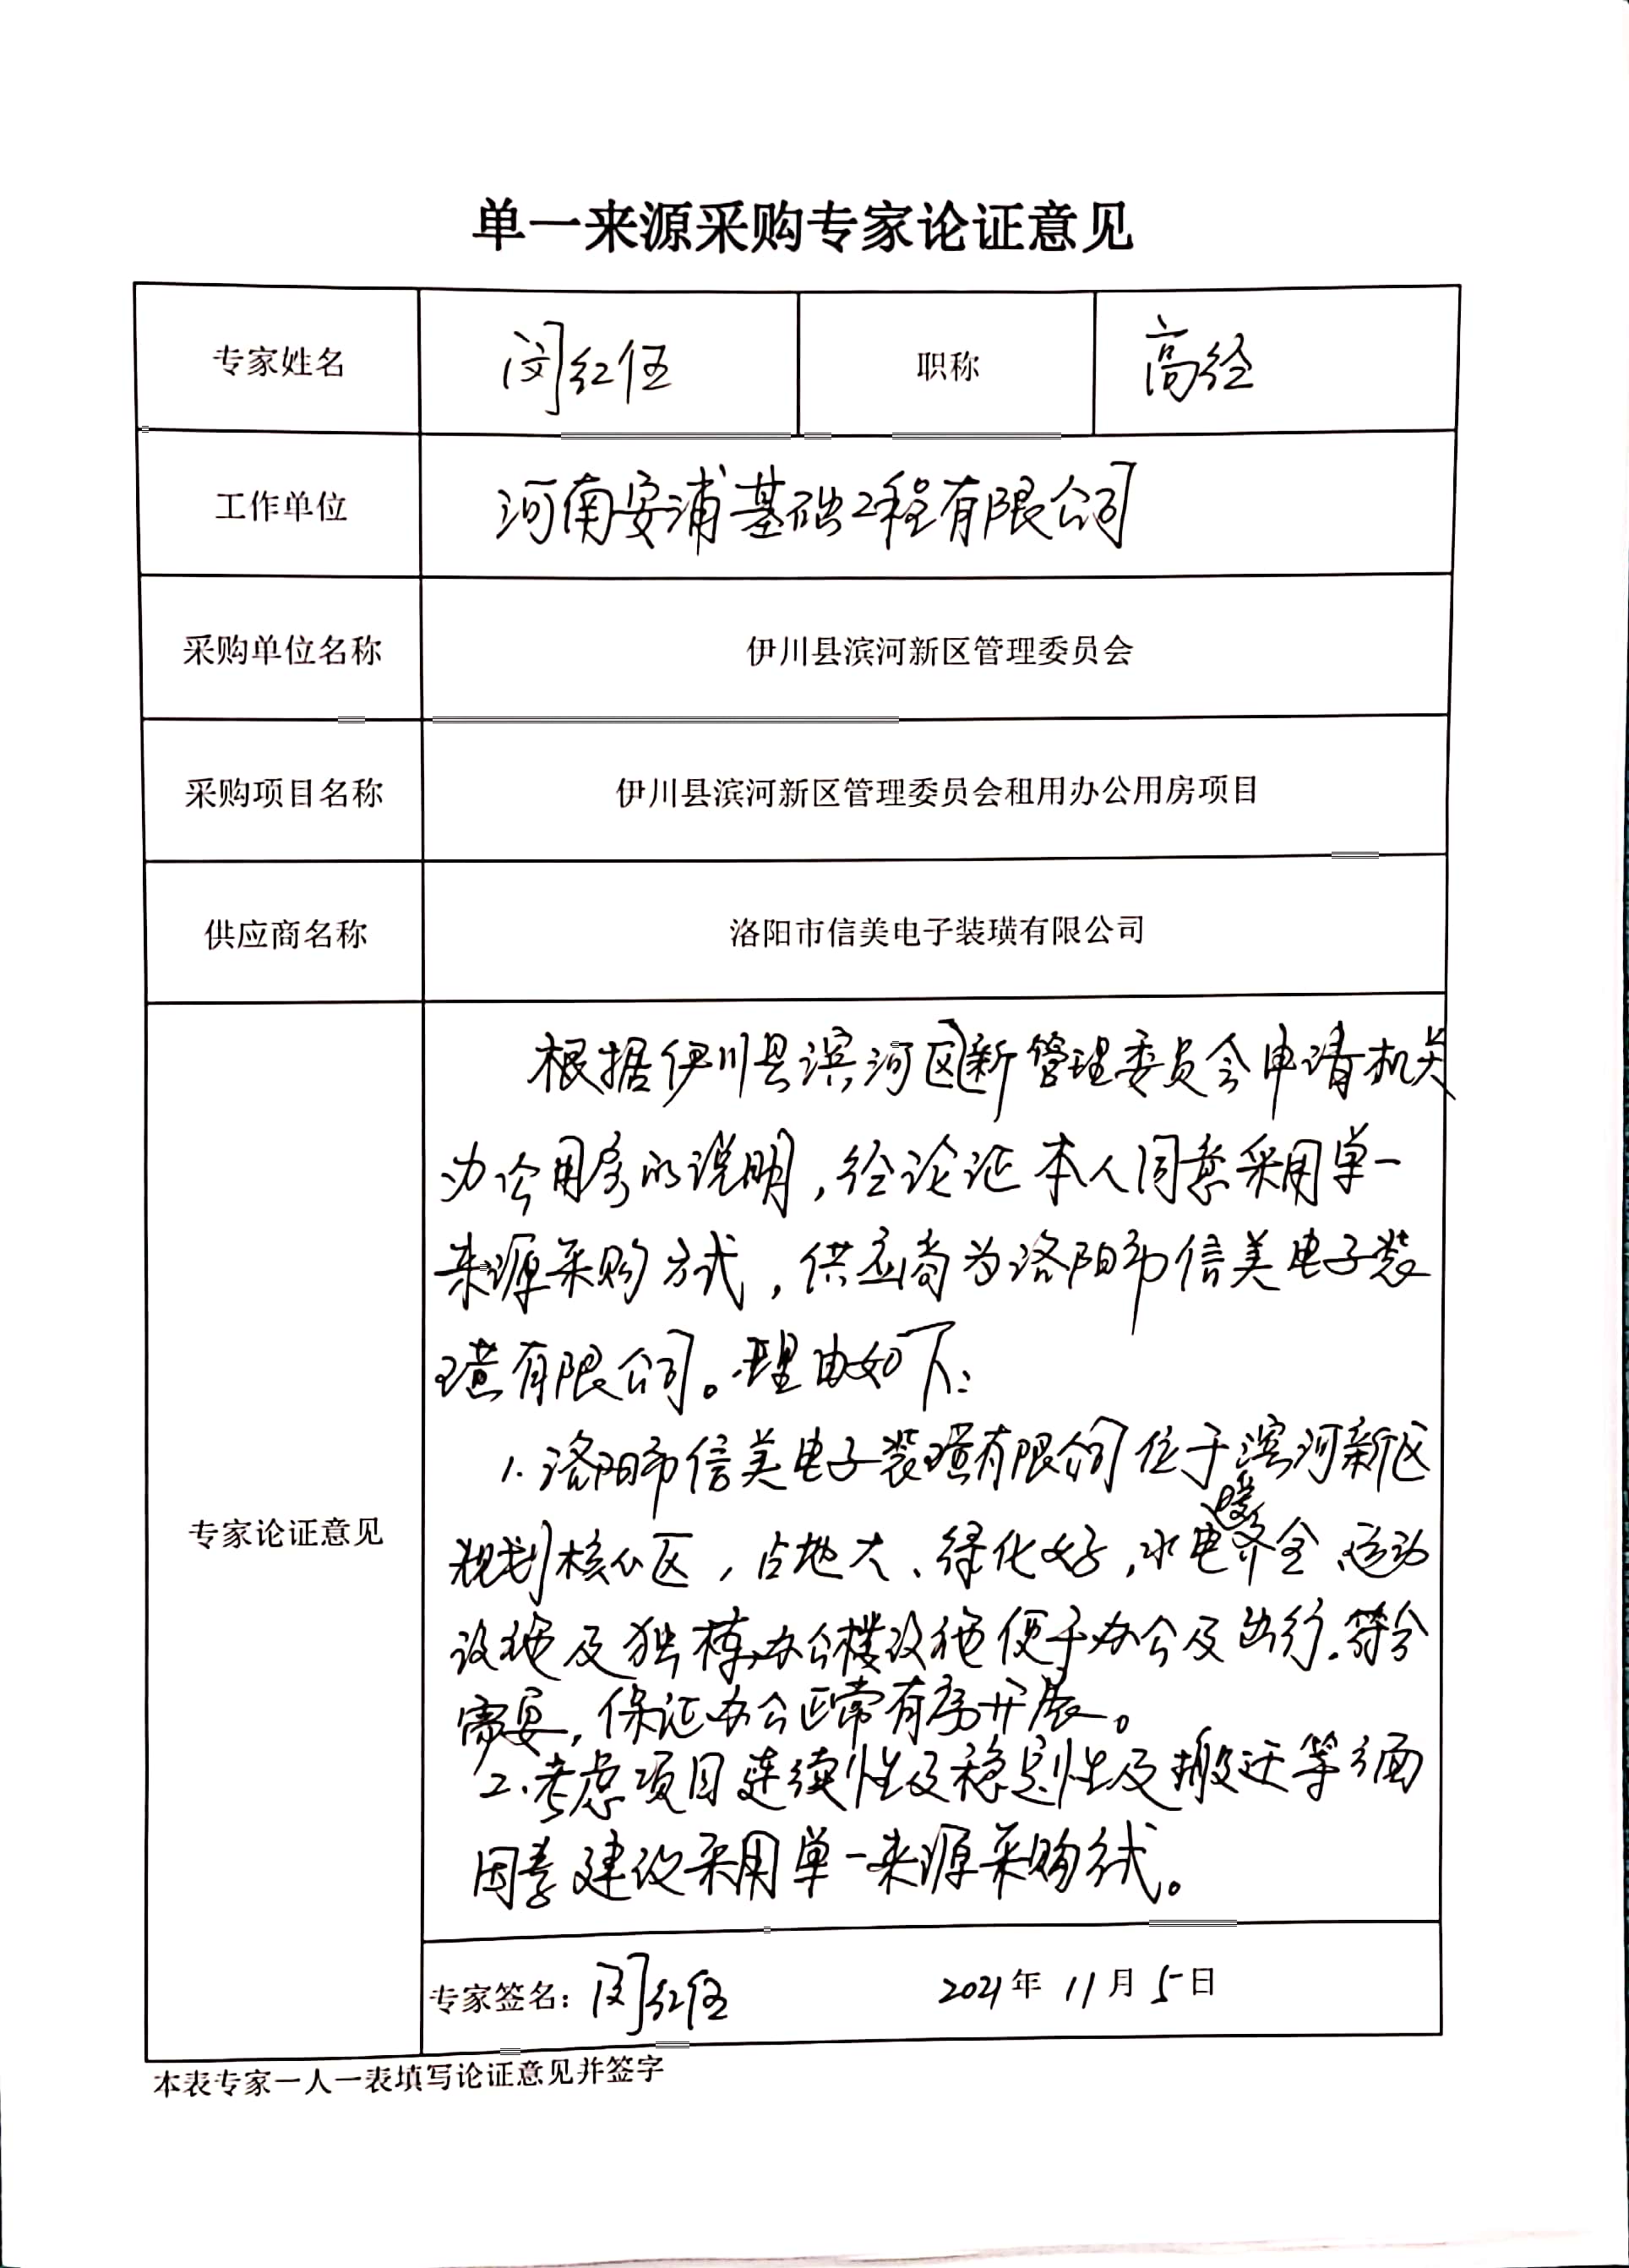 单一来源采购专家论证意见
专家姓名 闵红伍 职称 高经
工作单位 河南安浦基础工程有限公司
采购单位名称 伊川县滨河新区管理委员会
采购项目名称 伊川县滨河新区管理委员会租用办公用房项目
供应商名称 洛阳市信美电子装璜有限公司
专家论证意见
根据伊川县滨河区新管理委员会申请机关
办公用房的说明，经论证本人同意采用单一
来源采购方式，供应商为洛阳市信美电子装
璜有限公司。理由如下：
1.洛阳市信美电子装璜有限公司位于滨河新区
规划核心区，占地大、绿化好，水电暖齐全、运动
设施及独栋办公楼设施便于办公及出行.符合
需要，保证办公正常有序开展。
2.考虑项目连续性及稳定性及搬迁等方面
因素建议采用单一来源采购方式。
专家签名：闵红伍 2021年11月5日
本表专家一人一表填写论证意见并签字